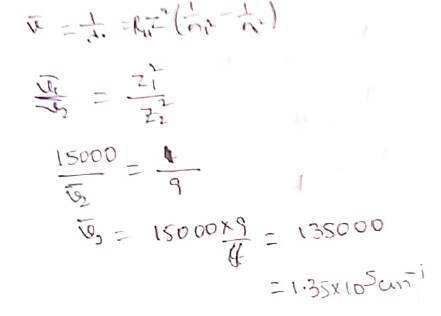 ν̄ = 1/λ = R_H z² (1/n₁² - 1/n₂²)
ν̄₁/ν̄₂ = Z₁²/Z₂²
15000/ν̄₂ = 1/9
ν̄₂ = 15000×9/1 = 135000
= 1.35×10⁵ cm⁻¹